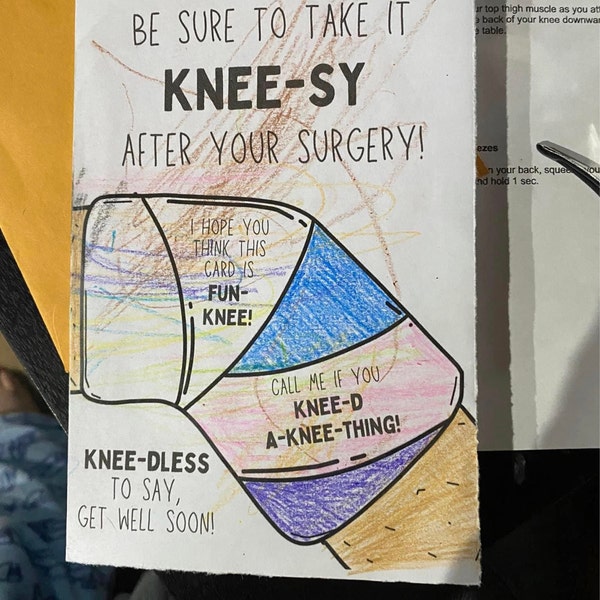 BE SURE TO TAKE IT
KNEE-SY
AFTER YOUR SURGERY!
I HOPE YOU
THINK THIS
CARD IS
FUN-
KNEE!
CALL ME IF YOU
KNEE-D
A-KNEE-THING!
KNEE-DLESS
TO SAY,
GET WELL SOON!
top thigh muscle as you
back of your knee
table.
your back,
hold 1 sec.